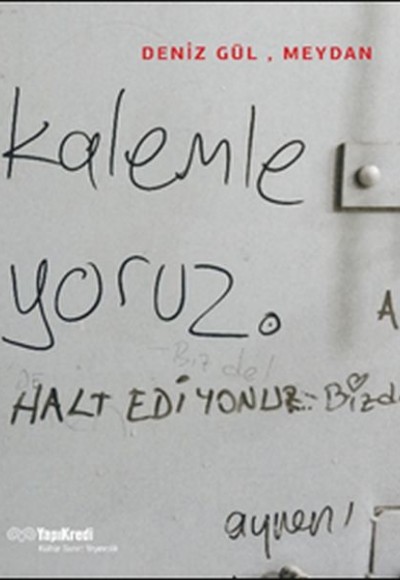 DENİZ GÜL , MEYDAN
kalemle
yoruz.
A
Biz de!
HALT EDİYONUZ: Bizd
aynen!
YapıKredi
Kültür Sanat Yayıncılık